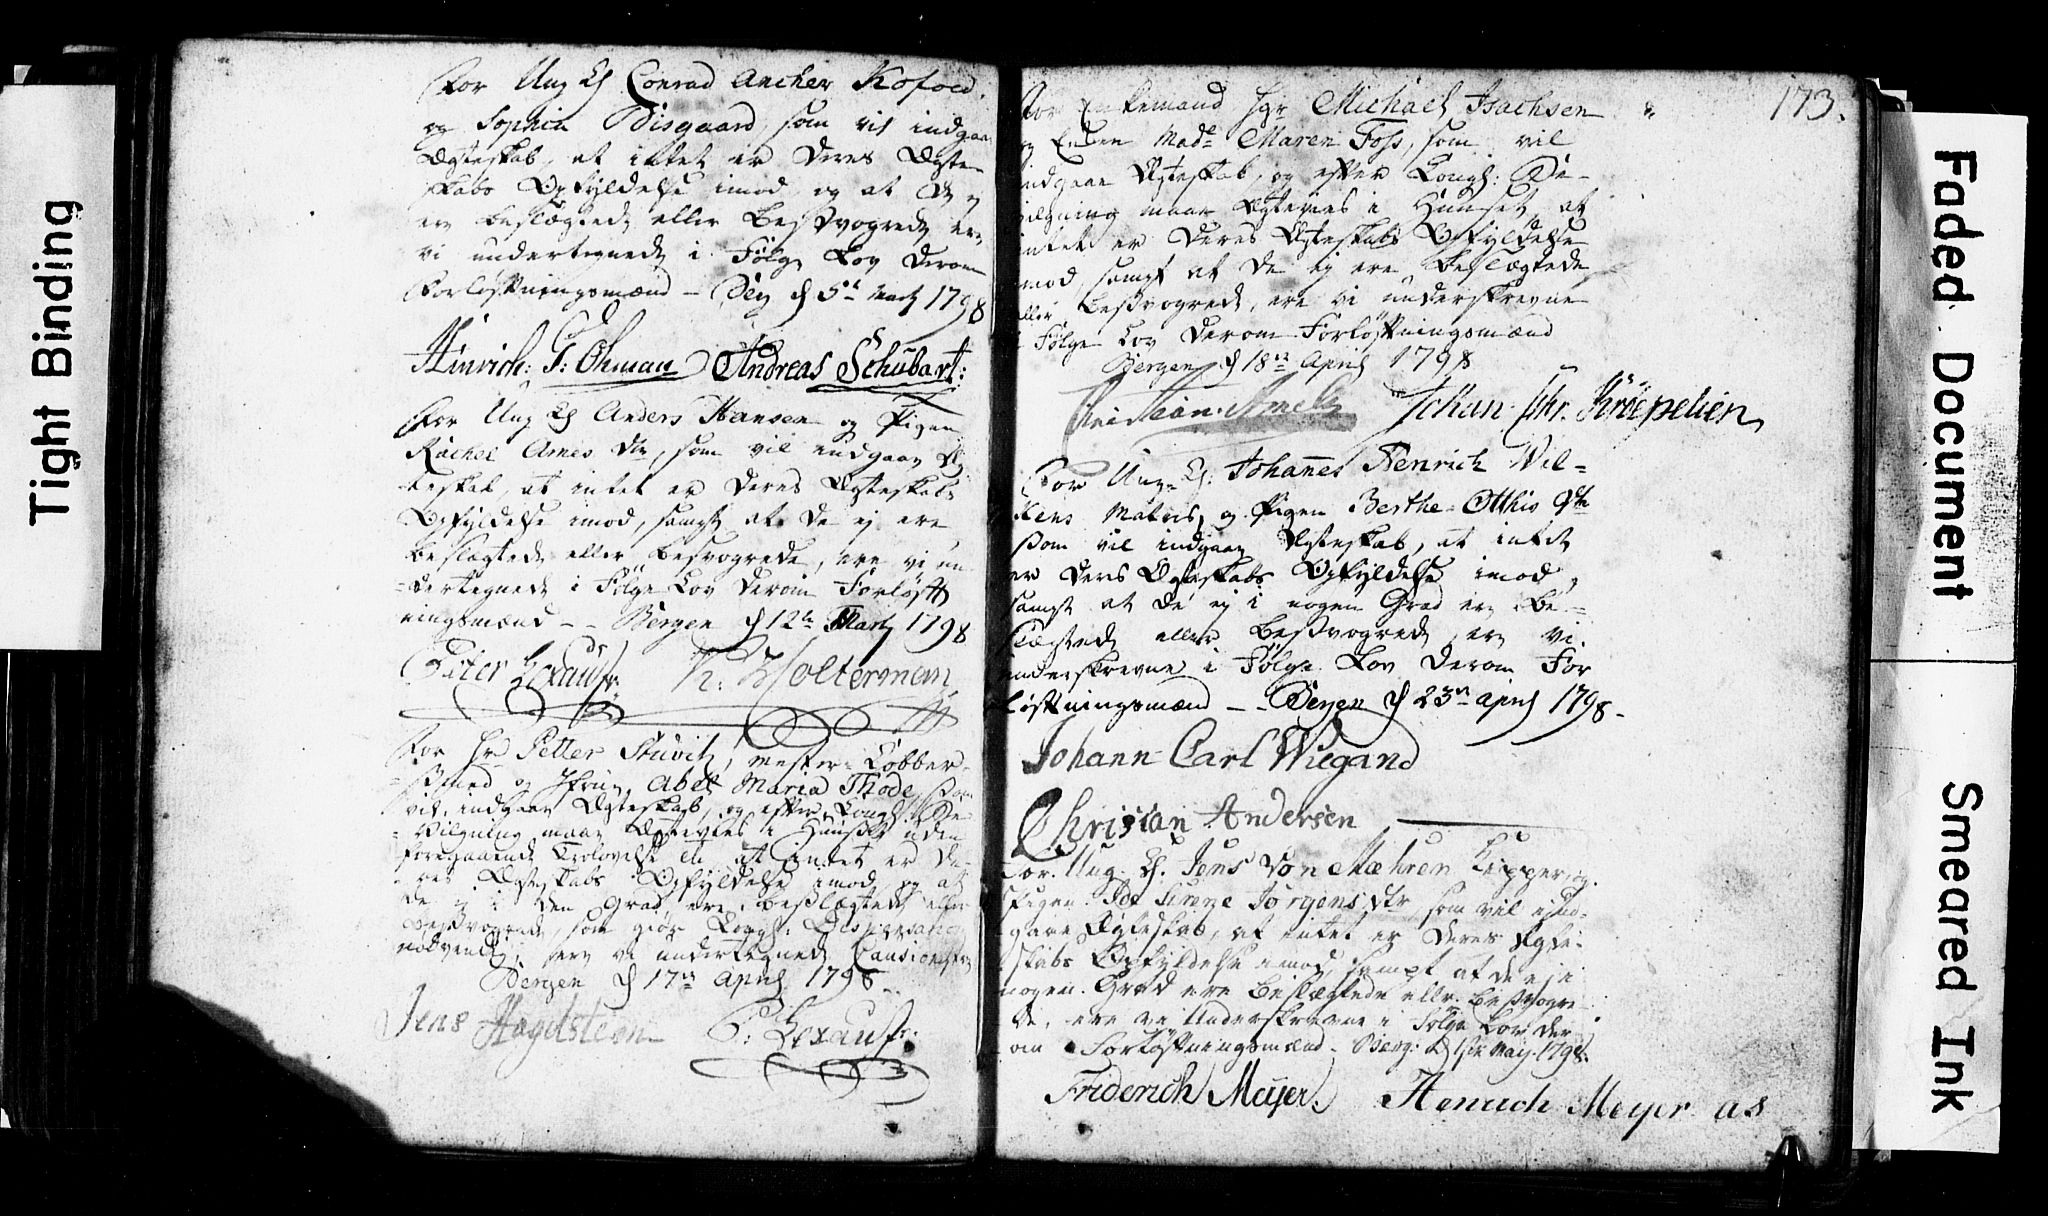 Tight Binding
For Ung K. Conrad Ancher Kofoed,
og Sophia Disgaard, som vil indgaa
Ægteskab, at intet er Deres Ægte-
skabs Opfyldelse imod, og at De ej
ere beslægtede eller besvogrede, ere
vi undertegnede i Følge Lov derom
Forløftningsmænd – Berg. d 5t Marty 1798
Hinrich: G: Ohman Andreas Schubart:
For Ung K Anders Hansen og Pigen
Rachel Arnes Dtr, som vil indgaae Æg-
teskab, at intet er Deres Ægteskabs
Opfyldelse imod, sampt at De ej ere
beslægtede eller besvogrede, ere vi un
-dertegnede i Følge Lov derom Forløft
ningsmænd – – Bergen d 12te Marty 1798
Peter Bexau Holterman
For Hr Petter Stuvitz, Mester Kobber-
-smed og Jfrue Abel Maria Thode, som
vil indgaae Ægteskab, og efter Kongl. Be
-vilgning maae Ægtevies i Huuset uden
foregaaende Trolovelse at intet er De-
res Ægteskabs Opfyldelse imod, og at
de ej i den Grad ere beslægtede eller
besvogrede, som giør Kongl: Dispensation
nødvendig, ere vi undertegnede Cautionister
Bergen d 17de April 1798.
Jens Hagelsteen P: Bexau
173.
For Enkemand Sgr Michael Isachsen
og Enken Made Maren Foss, som vil
indgaae Ægteskab, og efter Kongl: Be-
vilgning maae Ægtevies i Huuset, at
intet er Deres Ægteskabs Opfyldelse
imod, sampt at De ej ere beslægtede
eller besvogrede, ere vi underskrevne
i Følge Lov derom Forløftningsmænd
Bergen d 18de April 1798
Christian Johan Chr. Krøepelien
For Ung-K. Johannes Henrich Wil-
kens Matros, og Pigen Berthe Otthis Dtr
som vil indgaae Ægteskab, at intet
er Deres Ægteskabs Opfyldelse imod,
sampt at De ej i nogen Grad ere be-
slægtede eller besvogrede, ere vi
underskrevne i Følge Lov derom For
løftningsmænd – – Bergen d 23de April 1798.
Johann Carl Wiegand
Christian Andersen
For Ung K. Jens von Mæhren Kipper, og
Pigen Jørgens Dtr, som vil ind-
gaae Ægteskab, at intet er Deres Ægte-
skabs Opfyldelse imod, sampt at de ej i
nogen Grad ere beslægtede ellr. besvogre-
de, ere vi Underskrevne i Følge Lov der
om Forløftningsmænd. Berg: d 1ste May. 1798.
Friderich Meyer. Henrich Meyer as
Faded Document
Smeared Ink